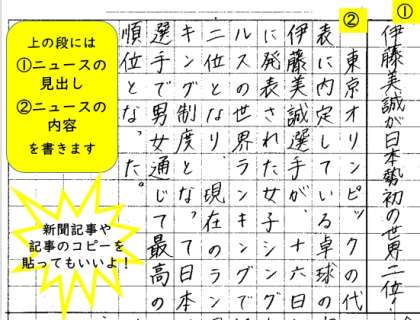 ①
伊藤美誠が日本勢初の世界二位！
②
東京オリンピックの代
表に内定している卓球の
伊藤美誠選手が、十六日
に発表された女子シング
ルスの世界ランキングで
二位となり、現在のラン
キング制度となって日本
選手で男女通じて最高の
順位となった。
上の段には
①ニュースの
見出し
②ニュースの
内容
を書きます
新聞記事や
記事のコピーを
貼ってもいいよ！